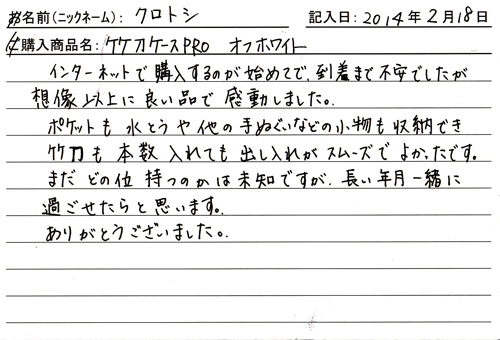 お名前(ニックネーム): クロトシ 記入日: 2014年2月18日
ご購入商品名: ケケ刀ケースPRO オフホワイト
インターネットで購入するのが始めてで、到着まで不安でしたが
想像以上に良い品で感動しました。
ポケットも水とうや他の手ぬぐいなどの小物も収納でき
竹刀も本数入れても出し入れがスムーズでよかったです。
まだどの位持つのかは未知ですが、長い年月一緒に
過ごせたらと思います。
ありがとうございました。